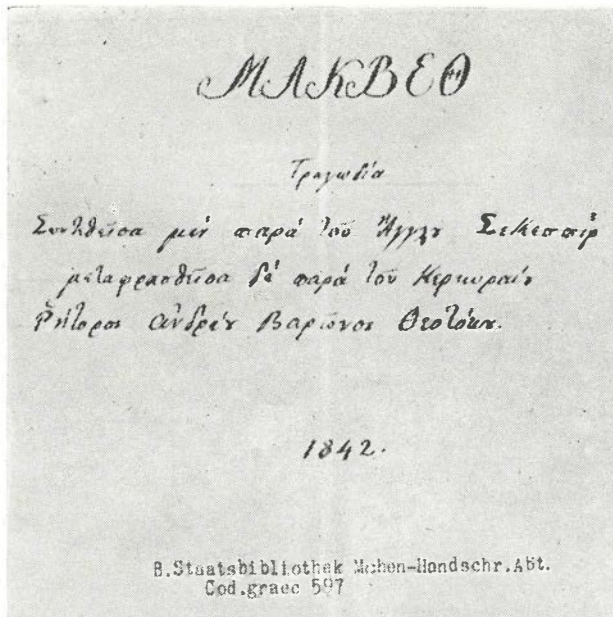 ΜΑΚΒΕΘ
Τραγωδία
Συντεθεῖσα μὲν παρὰ τοῦ Ἄγγλου Σεκεσπὶρ
μεταφρασθεῖσα δὲ παρὰ τοῦ Κερκυραίου
Ῥήτορος Ἀνδρέου Βαρῶνος Θεοτόκου.
1842.
B.Staatsbibliothek Mchen-Handschr.Abt.
Cod.graec 597